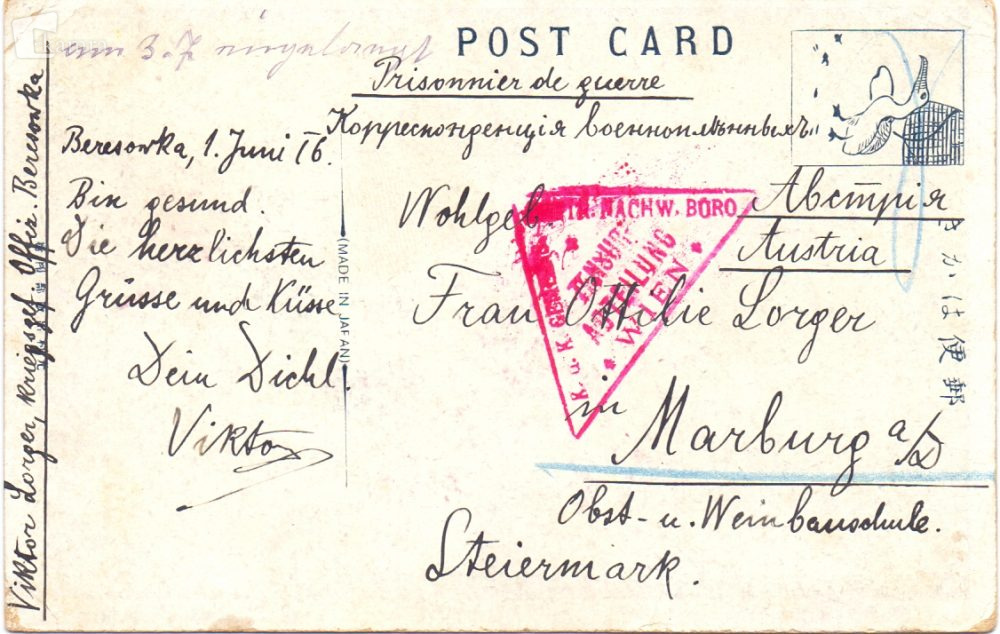 am 3.7 eingelangt
POST CARD
Prisonnier de guerre
Корреспонденція военноплѣнныхъ
Beresowka, 1. Juni 16.
Bin gesund.
Die herzlichsten
Grüsse und Küsse
Dein Dichl.
Viktor
(MADE IN JAPAN)
Австрія
Austria
Wohlgeb
Frau Ottilie Lorger
in Marburg a/D
Obst- u. Weinbauschule.
Steiermark.
NACHW. BÜRO
ZENSUR
ABTEILUNG
WIEN
K. u. K.
Viktor Lorger, kriegsgef. Offiz. Beresowka
きかは便郵